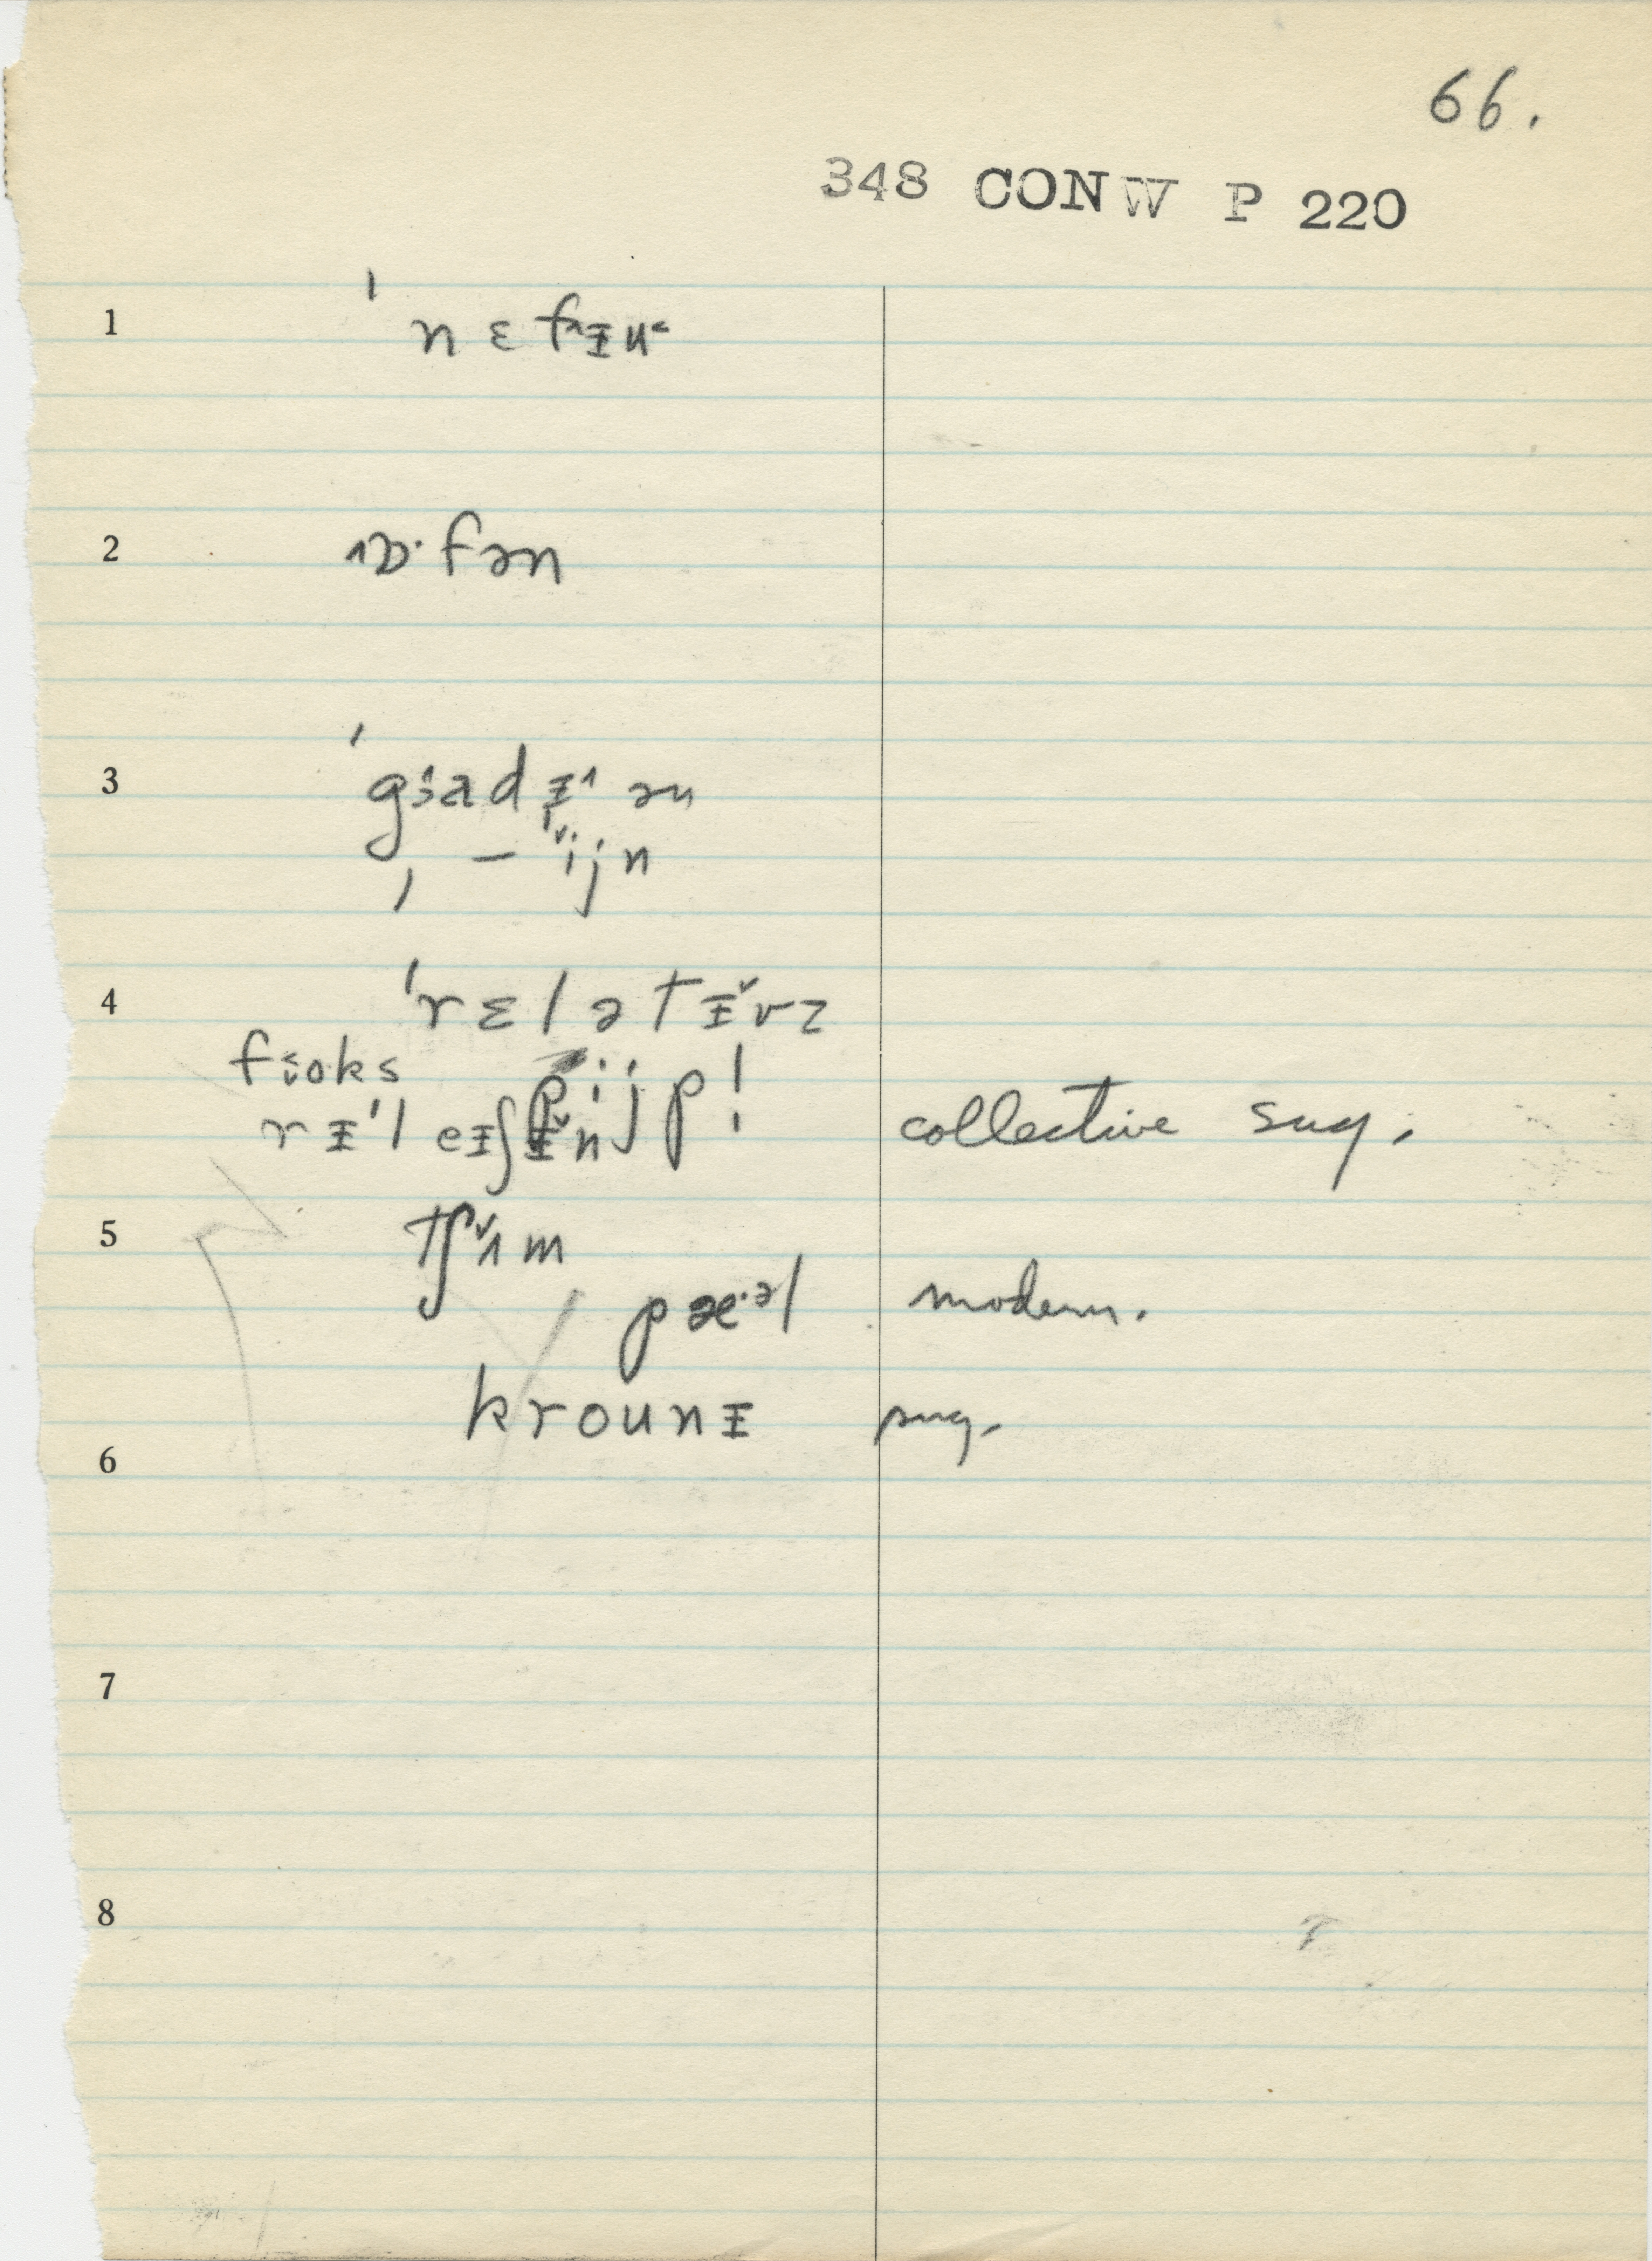 66.
348 CONW P 220
1 ˈnɛfᴧɪ̵u<
2 ɒ·fən
3 ˈgɑdɪ̵ən
, – ˇijn
4 ˈrɛlətɪ̵ˇvz
foks pijp!
rɪ̵ˈleɪ̵ʃɪ̵ˇn collective sug.
5 tʃˇʌm
pæ·ᵊl modern.
krounɪ̵ sug.
6
7
8